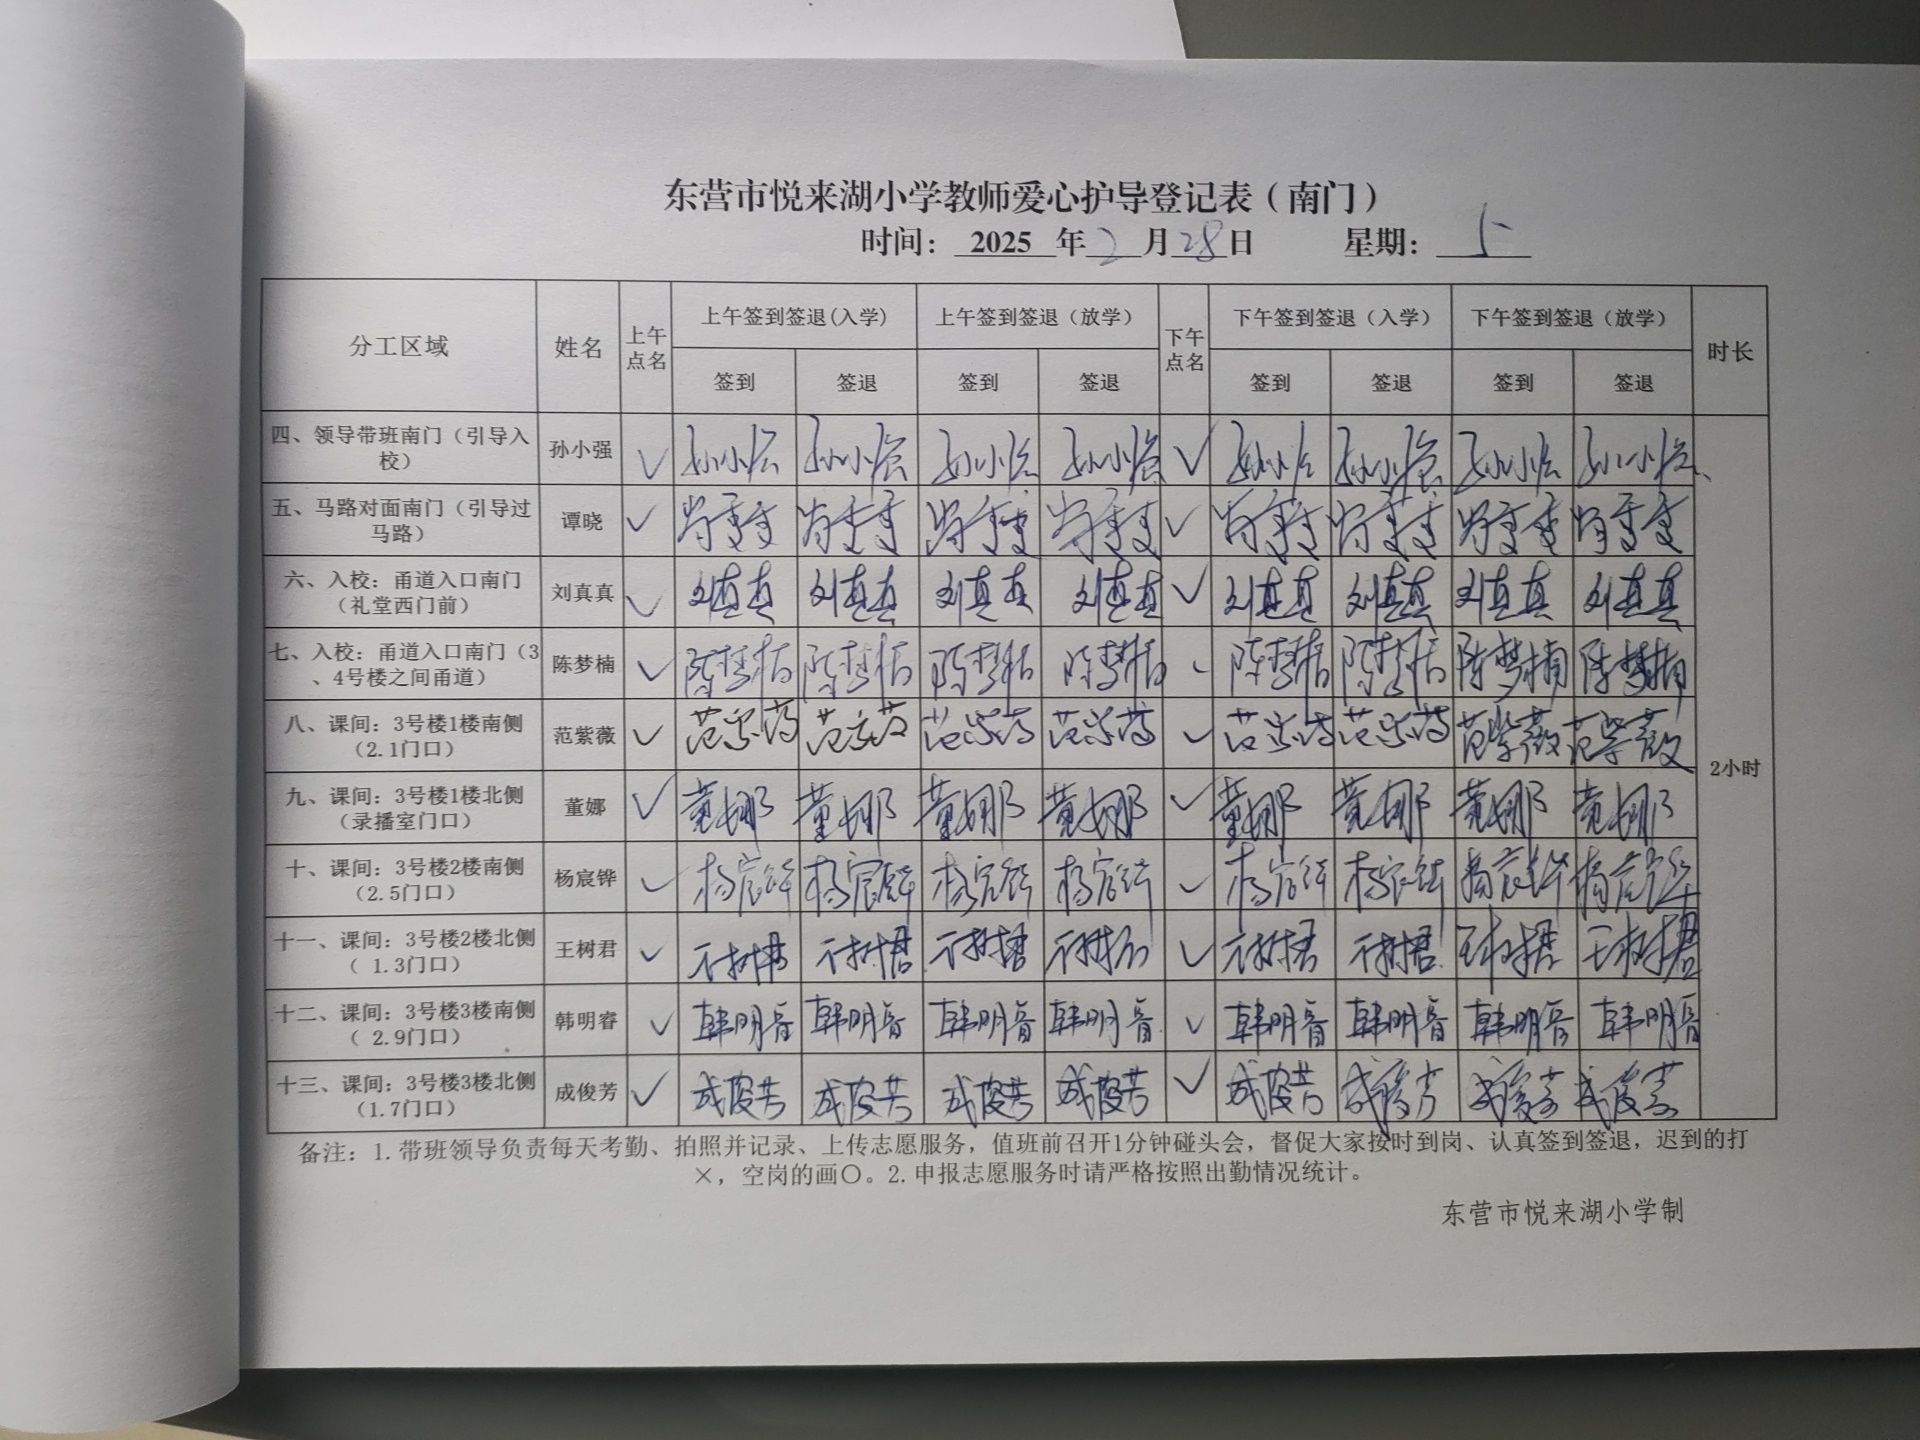 东营市悦来湖小学教师爱心护导登记表（南门）
时间： 2025 年 2 月 28 日 星期： 5
分工区域 姓名 上午点名 上午签到签退(入学) 上午签到签退（放学） 下午点名 下午签到签退（入学） 下午签到签退（放学） 时长
签到 签退 签到 签退 签到 签退 签到 签退
四、领导带班南门（引导入
校） 孙小强 ✓ ✓
五、马路对面南门（引导过
马路） 谭晓 ✓ ✓
六、入校：甬道入口南门
（礼堂西门前） 刘真真 ✓ 刘真真 刘真真 刘真真 刘真真 ✓ 刘真真 刘真真 刘真真 刘真真
七、入校：甬道入口南门（3
、4号楼之间甬道） 陈梦楠 ✓ 陈梦楠 陈梦楠 陈梦楠 陈梦楠 ✓ 陈梦楠 陈梦楠 陈梦楠 陈梦楠
八、课间：3号楼1楼南侧
（2.1门口） 范紫薇 ✓ 范紫薇 范紫薇 范紫薇 范紫薇 ✓ 范紫薇 范紫薇 范紫薇 范紫薇
2小时
九、课间：3号楼1楼北侧
（录播室门口） 董娜 ✓ 董娜 董娜 董娜 董娜 ✓ 董娜 董娜 董娜 董娜
十、课间：3号楼2楼南侧
（2.5门口） 杨宸铧 ✓ 杨宸铧 杨宸铧 杨宸铧 杨宸铧 ✓ 杨宸铧 杨宸铧 杨宸铧 杨宸铧
十一、课间：3号楼2楼北侧
（ 1.3门口） 王树君 ✓ 王树君 王树君 王树君 王树君 ✓ 王树君 王树君 王树君 王树君
十二、课间：3号楼3楼南侧
（ 2.9门口） 韩明睿 ✓ 韩明睿 韩明睿 韩明睿 韩明睿 ✓ 韩明睿 韩明睿 韩明睿 韩明睿
十三、课间：3号楼3楼北侧
（1.7门口） 成俊芳 ✓ 成俊芳 成俊芳 成俊芳 成俊芳 ✓ 成俊芳 成俊芳 成俊芳 成俊芳
备注：1.带班领导负责每天考勤、拍照并记录、上传志愿服务，值班前召开1分钟碰头会，督促大家按时到岗、认真签到签退，迟到的打
×，空岗的画〇。2.申报志愿服务时请严格按照出勤情况统计。
东营市悦来湖小学制